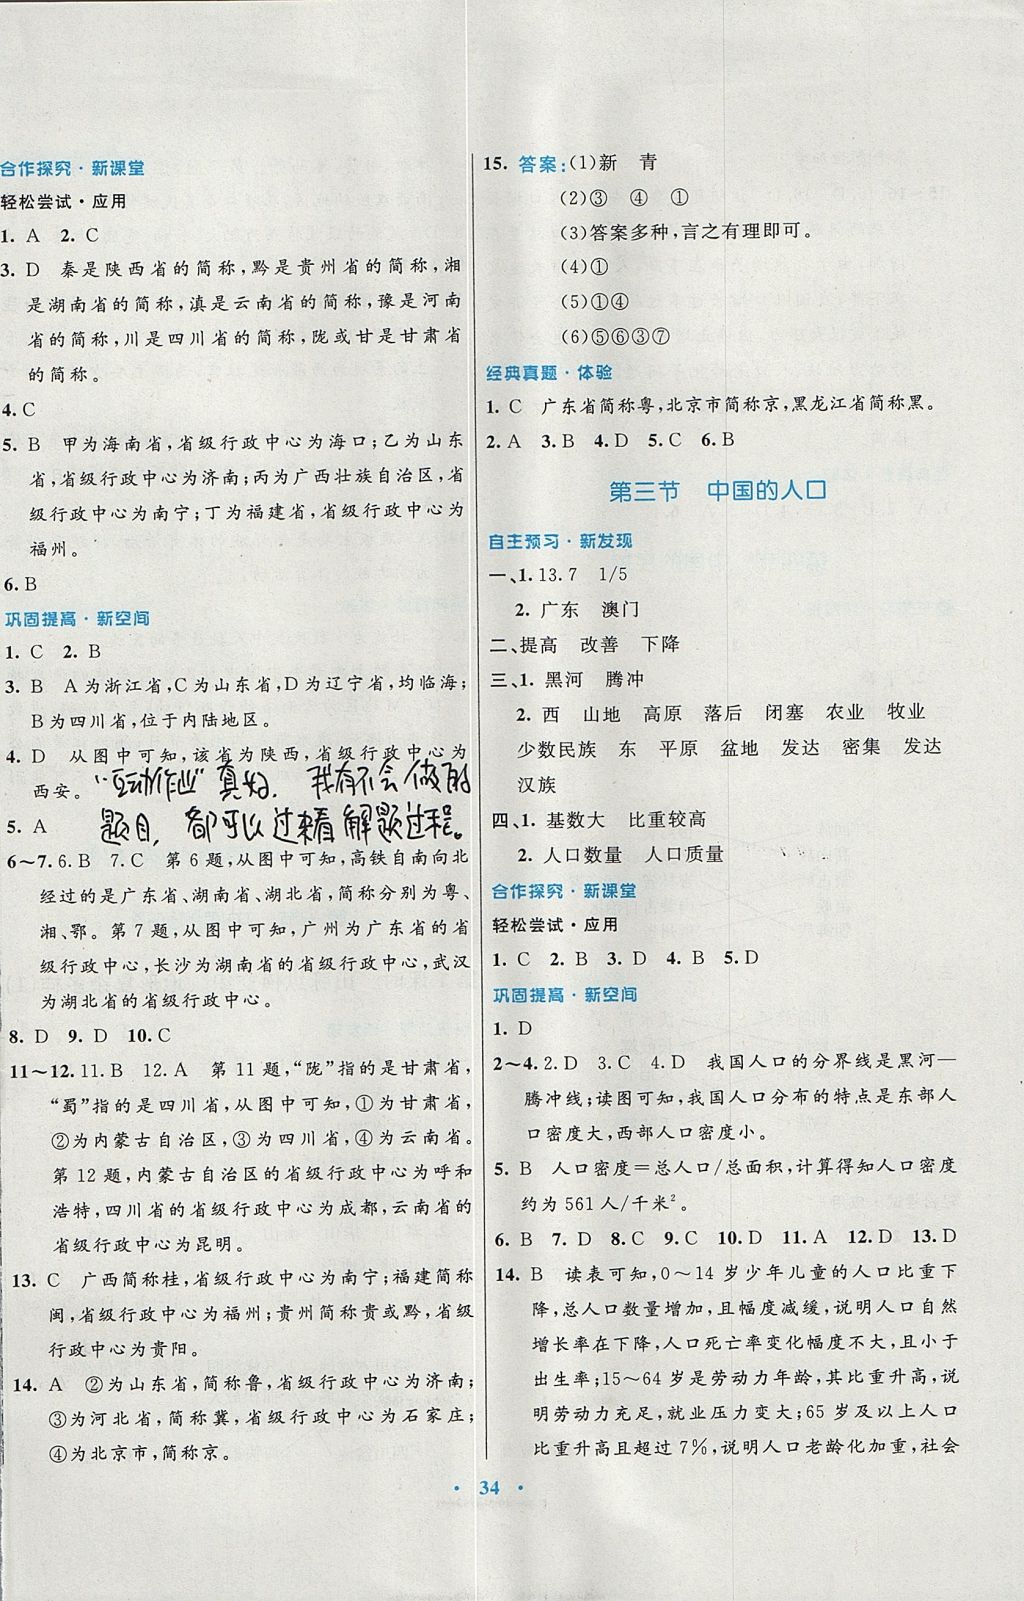 合作探究·新课堂
轻松尝试·应用
1. A 2. C
3. D 秦是陕西省的简称,黔是贵州省的简称,湘
是湖南省的简称,滇是云南省的简称,豫是河南
省的简称,川是四川省的简称,陇或甘是甘肃省
的简称。
4. C
5. B 甲为海南省,省级行政中心为海口;乙为山东
省,省级行政中心为济南;丙为广西壮族自治区,省
级行政中心为南宁;丁为福建省,省级行政中心为
福州。
6. B
巩固提高·新空间
1. C 2. B
3. B A为浙江省,C为山东省,D为辽宁省,均临海;
B为四川省,位于内陆地区。
4. D 从图中可知,该省为陕西,省级行政中心为
西安。
“互动作业”真好,我有不会做的
5. A
题目,都可以过来看解题过程。
6～7. 6. B 7. C 第6题,从图中可知,高铁自南向北
经过的是广东省、湖南省、湖北省,简称分别为粤、
湘、鄂。第7题,从图中可知,广州为广东省的省
级行政中心,长沙为湖南省的省级行政中心,武汉
为湖北省的省级行政中心。
8. D 9. D 10. C
11～12. 11. B 12. A 第11题,“陇”指的是甘肃省,
“蜀”指的是四川省,从图中可知,①为甘肃省,
②为内蒙古自治区,③为四川省,④为云南省。
第12题,内蒙古自治区的省级行政中心为呼和
浩特,四川省的省级行政中心为成都,云南省的
省级行政中心为昆明。
13. C 广西简称桂,省级行政中心为南宁;福建简称
闽,省级行政中心为福州;贵州简称贵或黔,省级
行政中心为贵阳。
14. A ②为山东省,简称鲁,省级行政中心为济南;
③为河北省,简称冀,省级行政中心为石家庄;
④为北京市,简称京。
15. 答案:(1)新 青
(2)③ ④ ①
(3)答案多种,言之有理即可。
(4)①
(5)①④
(6)⑤⑥③⑦
经典真题·体验
1. C 广东省简称粤,北京市简称京,黑龙江省简称黑。
2. A 3. B 4. D 5. C 6. B
第三节 中国的人口
自主预习·新发现
一、1. 13.7 1/5
2. 广东 澳门
二、提高 改善 下降
三、1. 黑河 腾冲
2. 西 山地 高原 落后 闭塞 农业 牧业
少数民族 东 平原 盆地 发达 密集 发达
汉族
四、1. 基数大 比重较高
2. 人口数量 人口质量
合作探究·新课堂
轻松尝试·应用
1. C 2. B 3. D 4. B 5. D
巩固提高·新空间
1. D
2～4. 2. D 3. C 4. D 我国人口的分界线是黑河—
腾冲线;读图可知,我国人口分布的特点是东部人
口密度大,西部人口密度小。
5. B 人口密度=总人口/总面积,计算得知人口密度
约为561人/千米²。
6. B 7. D 8. C 9. C 10. D 11. A 12. D 13. D
14. B 读表可知,0～14岁少年儿童的人口比重下
降,总人口数量增加,且幅度减缓,说明人口自然
增长率在下降,人口死亡率变化幅度不大,且小于
出生率;15～64岁是劳动力年龄,其比重升高,说
明劳动力充足,就业压力变大;65岁及以上人口
比重升高且超过7%,说明人口老龄化加重,社会
· 34 ·